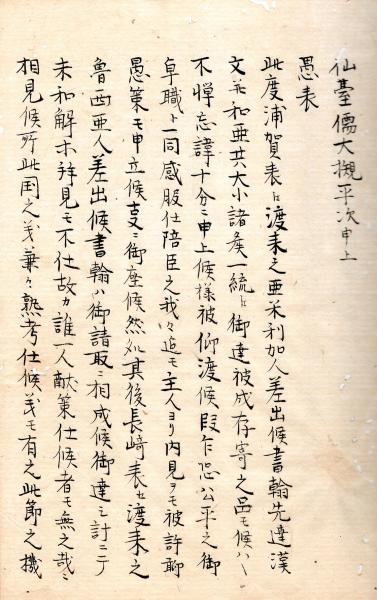 仙臺儒大槻平次申上
愚表
此度浦賀表ヘ渡来之亜米利加人差出候書翰先達漢
文并和亜共大小諸矦一統ヘ御達被成存寄之品モ候ハヽ
不憚忌諱十分ニ申上候様被仰渡候段乍恐公平之御
卓職ト一同感服仕陪臣之我々迄モ主人ヨリ内見ヲモ被許聊
愚策モ申立候事ニ御座候然処其後長﨑表ヘ渡来之
魯西亜人差出候書翰ハ御請取ニ相成候御達シ計ニテ
未和解ホ拝見モ不仕故カ誰一人献策仕候者モ無之哉ニ
相見候所此国之義兼々熟考仕候義モ有之此節之機